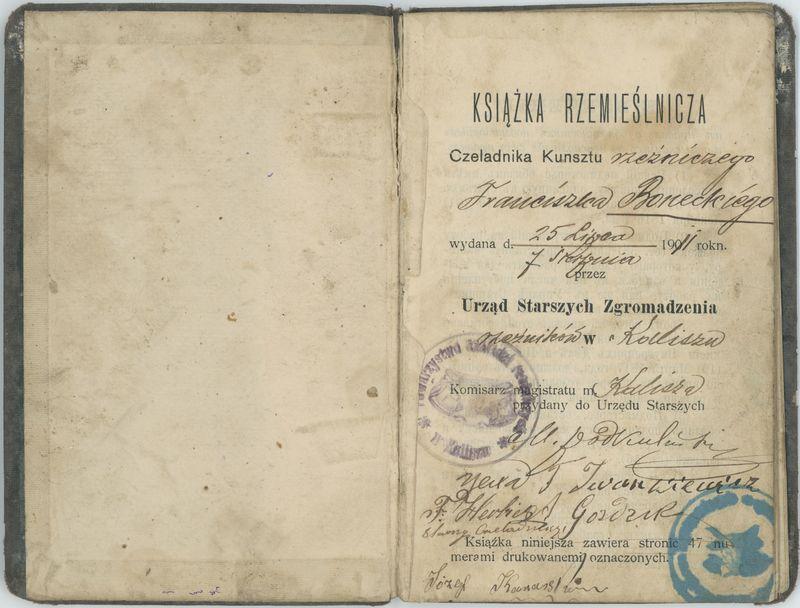 KSIĄŻKA RZEMIEŚLNICZA
Czeladnika Kunsztu rzeźniczego
Franciszka Boneckiego
wydana d. 25 Lipca 1901 rokn.
7 Sierpnia
przez
Urząd Starszych Zgromadzenia
rzeźników w Kaliszu
Komisarz magistratu m. Kalisza
przydany do Urzędu Starszych
w Kaliszu
F. Iwankiewicz
F.
Starszy Czeladniczy
Książka niniejsza zawiera stronic 47 nu
merami drukowanemi oznaczonych.
Józef